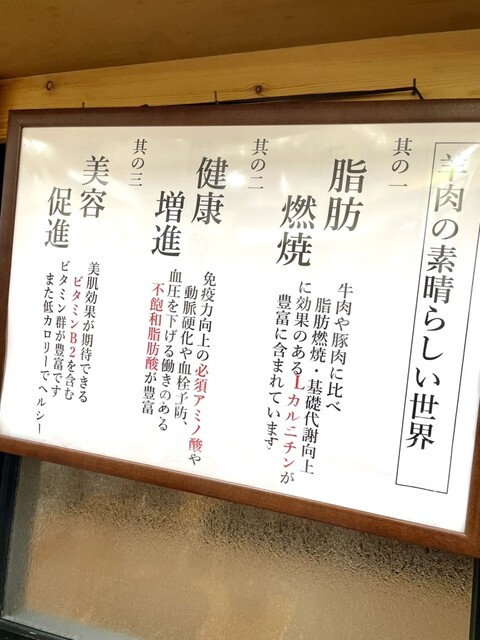 羊肉の素晴らしい世界
其の一
脂肪
燃焼
牛肉や豚肉に比べ
脂肪燃焼・基礎代謝向上
に効果のあるLカルニチンが
豊富に含まれています
其の二
健康
増進
免疫力向上の必須アミノ酸や
動脈硬化や血栓予防、
血圧を下げる働きのある
不飽和脂肪酸が豊富
其の三
美容
促進
美肌効果が期待できる
ビタミンB2を含む
ビタミン群が豊富です
また低カロリーでヘルシー